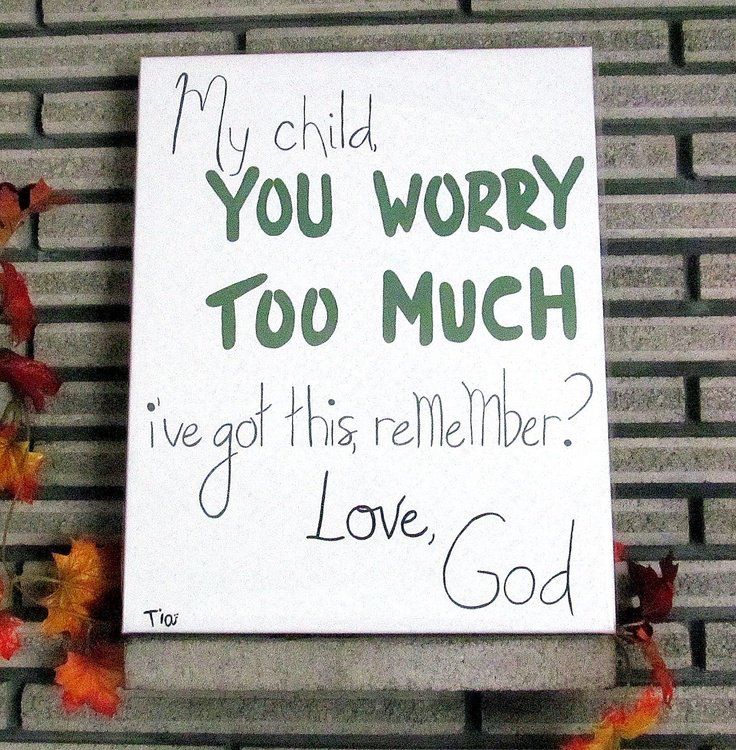 My child,
YOU WORRY
TOO MUCH
i've got this, reMeMber?
Love,
God
Tia